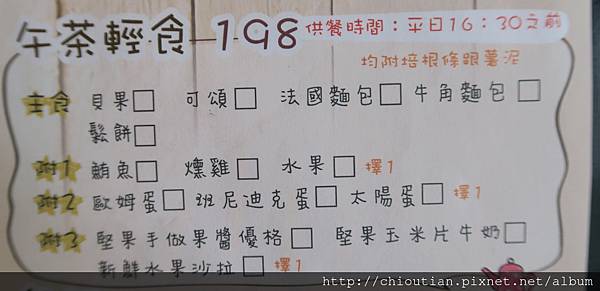 午茶輕食 198 供餐時間：平日16：30之前
均附培根條跟薯泥
主食 貝果□ 可頌□ 法國麵包□ 牛角麵包□
鬆餅□
附1 鮪魚□ 燻雞□ 水果□ 擇1
附2 歐姆蛋□ 班尼迪克蛋□ 太陽蛋□ 擇1
附3 堅果手做果醬優格□ 堅果玉米片牛奶□
新鮮水果沙拉□ 擇1
http://chioutian.pixnet.net/album